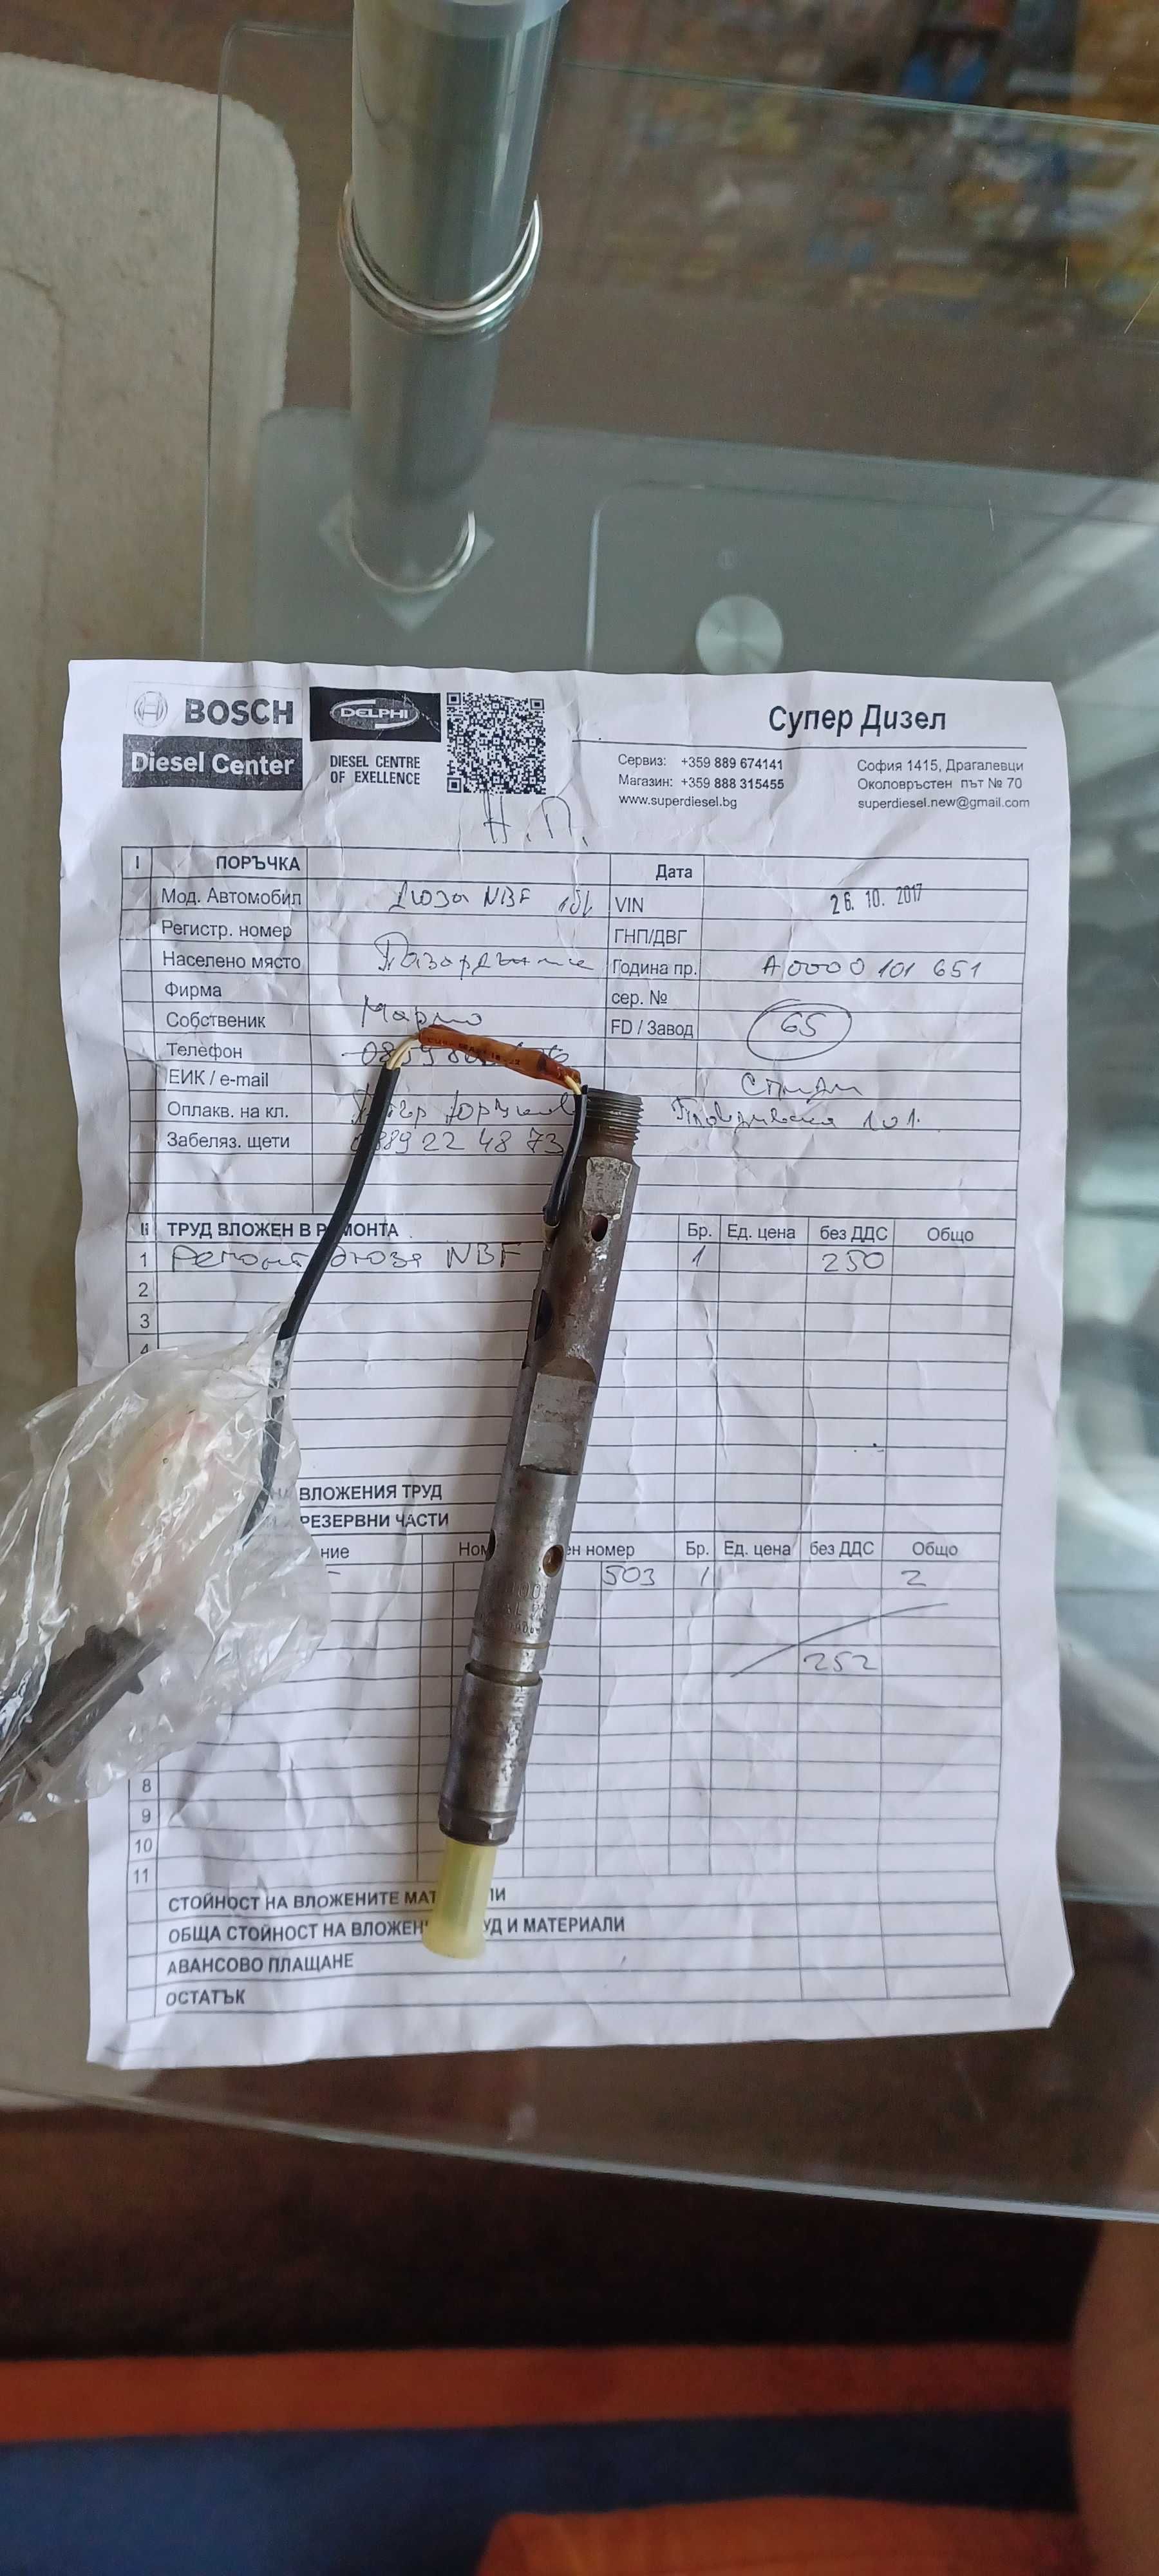 BOSCH
Diesel Center
DELPHI
DIESEL CENTRE
OF EXELLENCE
Супер Дизел
Сервиз: +359 889 674141
Магазин: +359 888 315455
www.superdiesel.bg
София 1415, Драгалевци
Околовръстен път № 70
superdiesel.new@gmail.com
Н.П.
I ПОРЪЧКА Дата
Мод. Автомобил Дюза NBF VIN 26. 10. 2017
Регистр. номер ГНП/ДВГ
Населено място Пазарджик Година пр. A0000 101 651
Фирма сер. №
Собственик Марио FD / Завод 65
Телефон
ЕИК / e-mail
Оплакв. на кл. 101
Забеляз. щети 889 22 48 73
II ТРУД ВЛОЖЕН В РЕМОНТА Бр. Ед. цена без ДДС Общо
1 Ремонт дюза NBF 1 250
2
3
4
ВЛОЖЕНИЯ ТРУД
РЕЗЕРВНИ ЧАСТИ
ние Ном ен номер Бр. Ед. цена без ДДС Общо
503 1 2
252
8
9
10
11
СТОЙНОСТ НА ВЛОЖЕНИТЕ МАТ ЛИ
ОБЩА СТОЙНОСТ НА ВЛОЖЕН УД И МАТЕРИАЛИ
АВАНСОВО ПЛАЩАНЕ
ОСТАТЪК